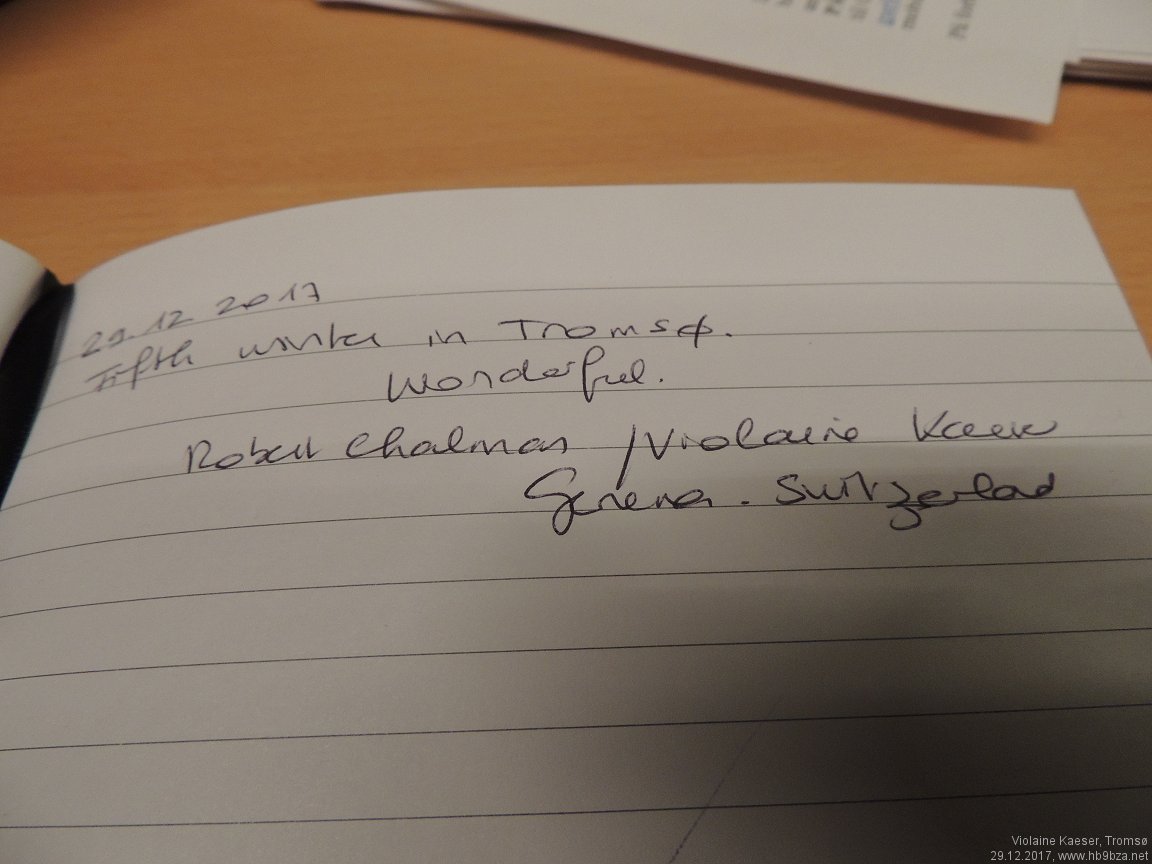 29.12 2017
Fifth winter in Tromsø.
Wonderful.
Robert Chalmas / Violaine Kaeser
Geneva. Switzerland
Violaine Kaeser, Tromsø
29.12.2017, www.hb9bza.net